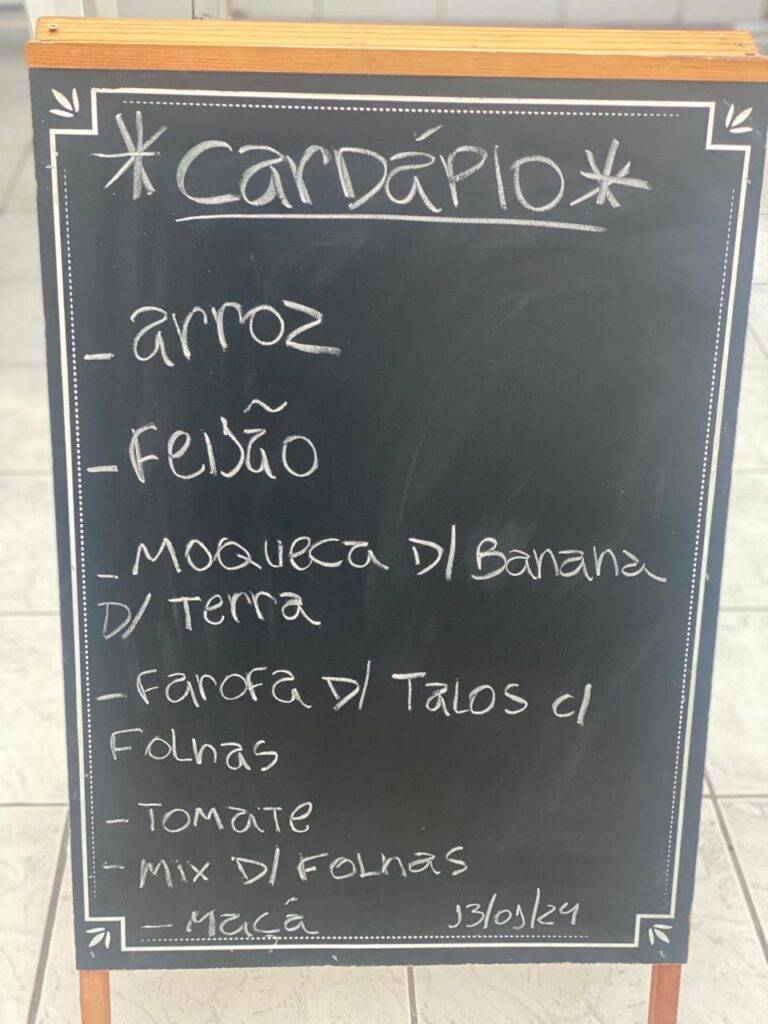 *Cardápio*
- arroz
- Feijão
- Moqueca D/ Banana
D/ Terra
- Farofa D/ Talos c/
Folhas
- Tomate
- Mix D/ Folhas
- Maçã 13/01/24